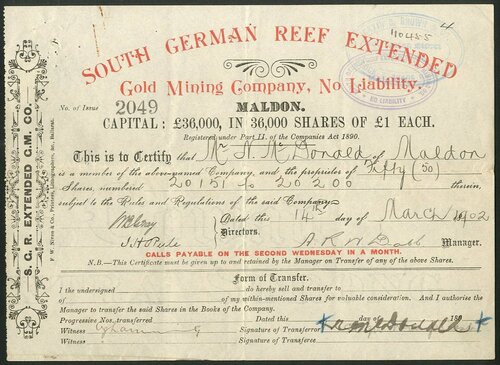 110485
4
SOUTH GERMAN REEF EXTENDED
Gold Mining Company, No Liability.
No. of Issue 2049
MALDON.
CAPITAL: £36,000, IN 36,000 SHARES OF £1 EACH.
Registered under Part II. of the Companies Act 1890.
This is to Certify that Mr N. McDonald of Maldon
is a member of the above-named Company, and the proprietor of Fifty (50)
Shares, numbered 20151 to 20200 therein,
subject to the Rules and Regulations of the said Company.
Dated this 14th day of March 1902
Directors.
Manager.
CALLS PAYABLE ON THE SECOND WEDNESDAY IN A MONTH.
N.B.—This Certificate must be given up to and retained by the Manager on Transfer of any of the above Shares.
Form of Transfer.
I the undersigned do hereby sell and transfer to
of of my within-mentioned Shares for valuable consideration. And I authorise the
Manager to transfer the said Shares in the Books of the Company.
Progressive Nos. transferred Dated this day of 189
Witness Signature of Transferror N McDonald
Witness Signature of Transferree
S. G. R. EXTENDED G.M. CO.
NO LIABILITY